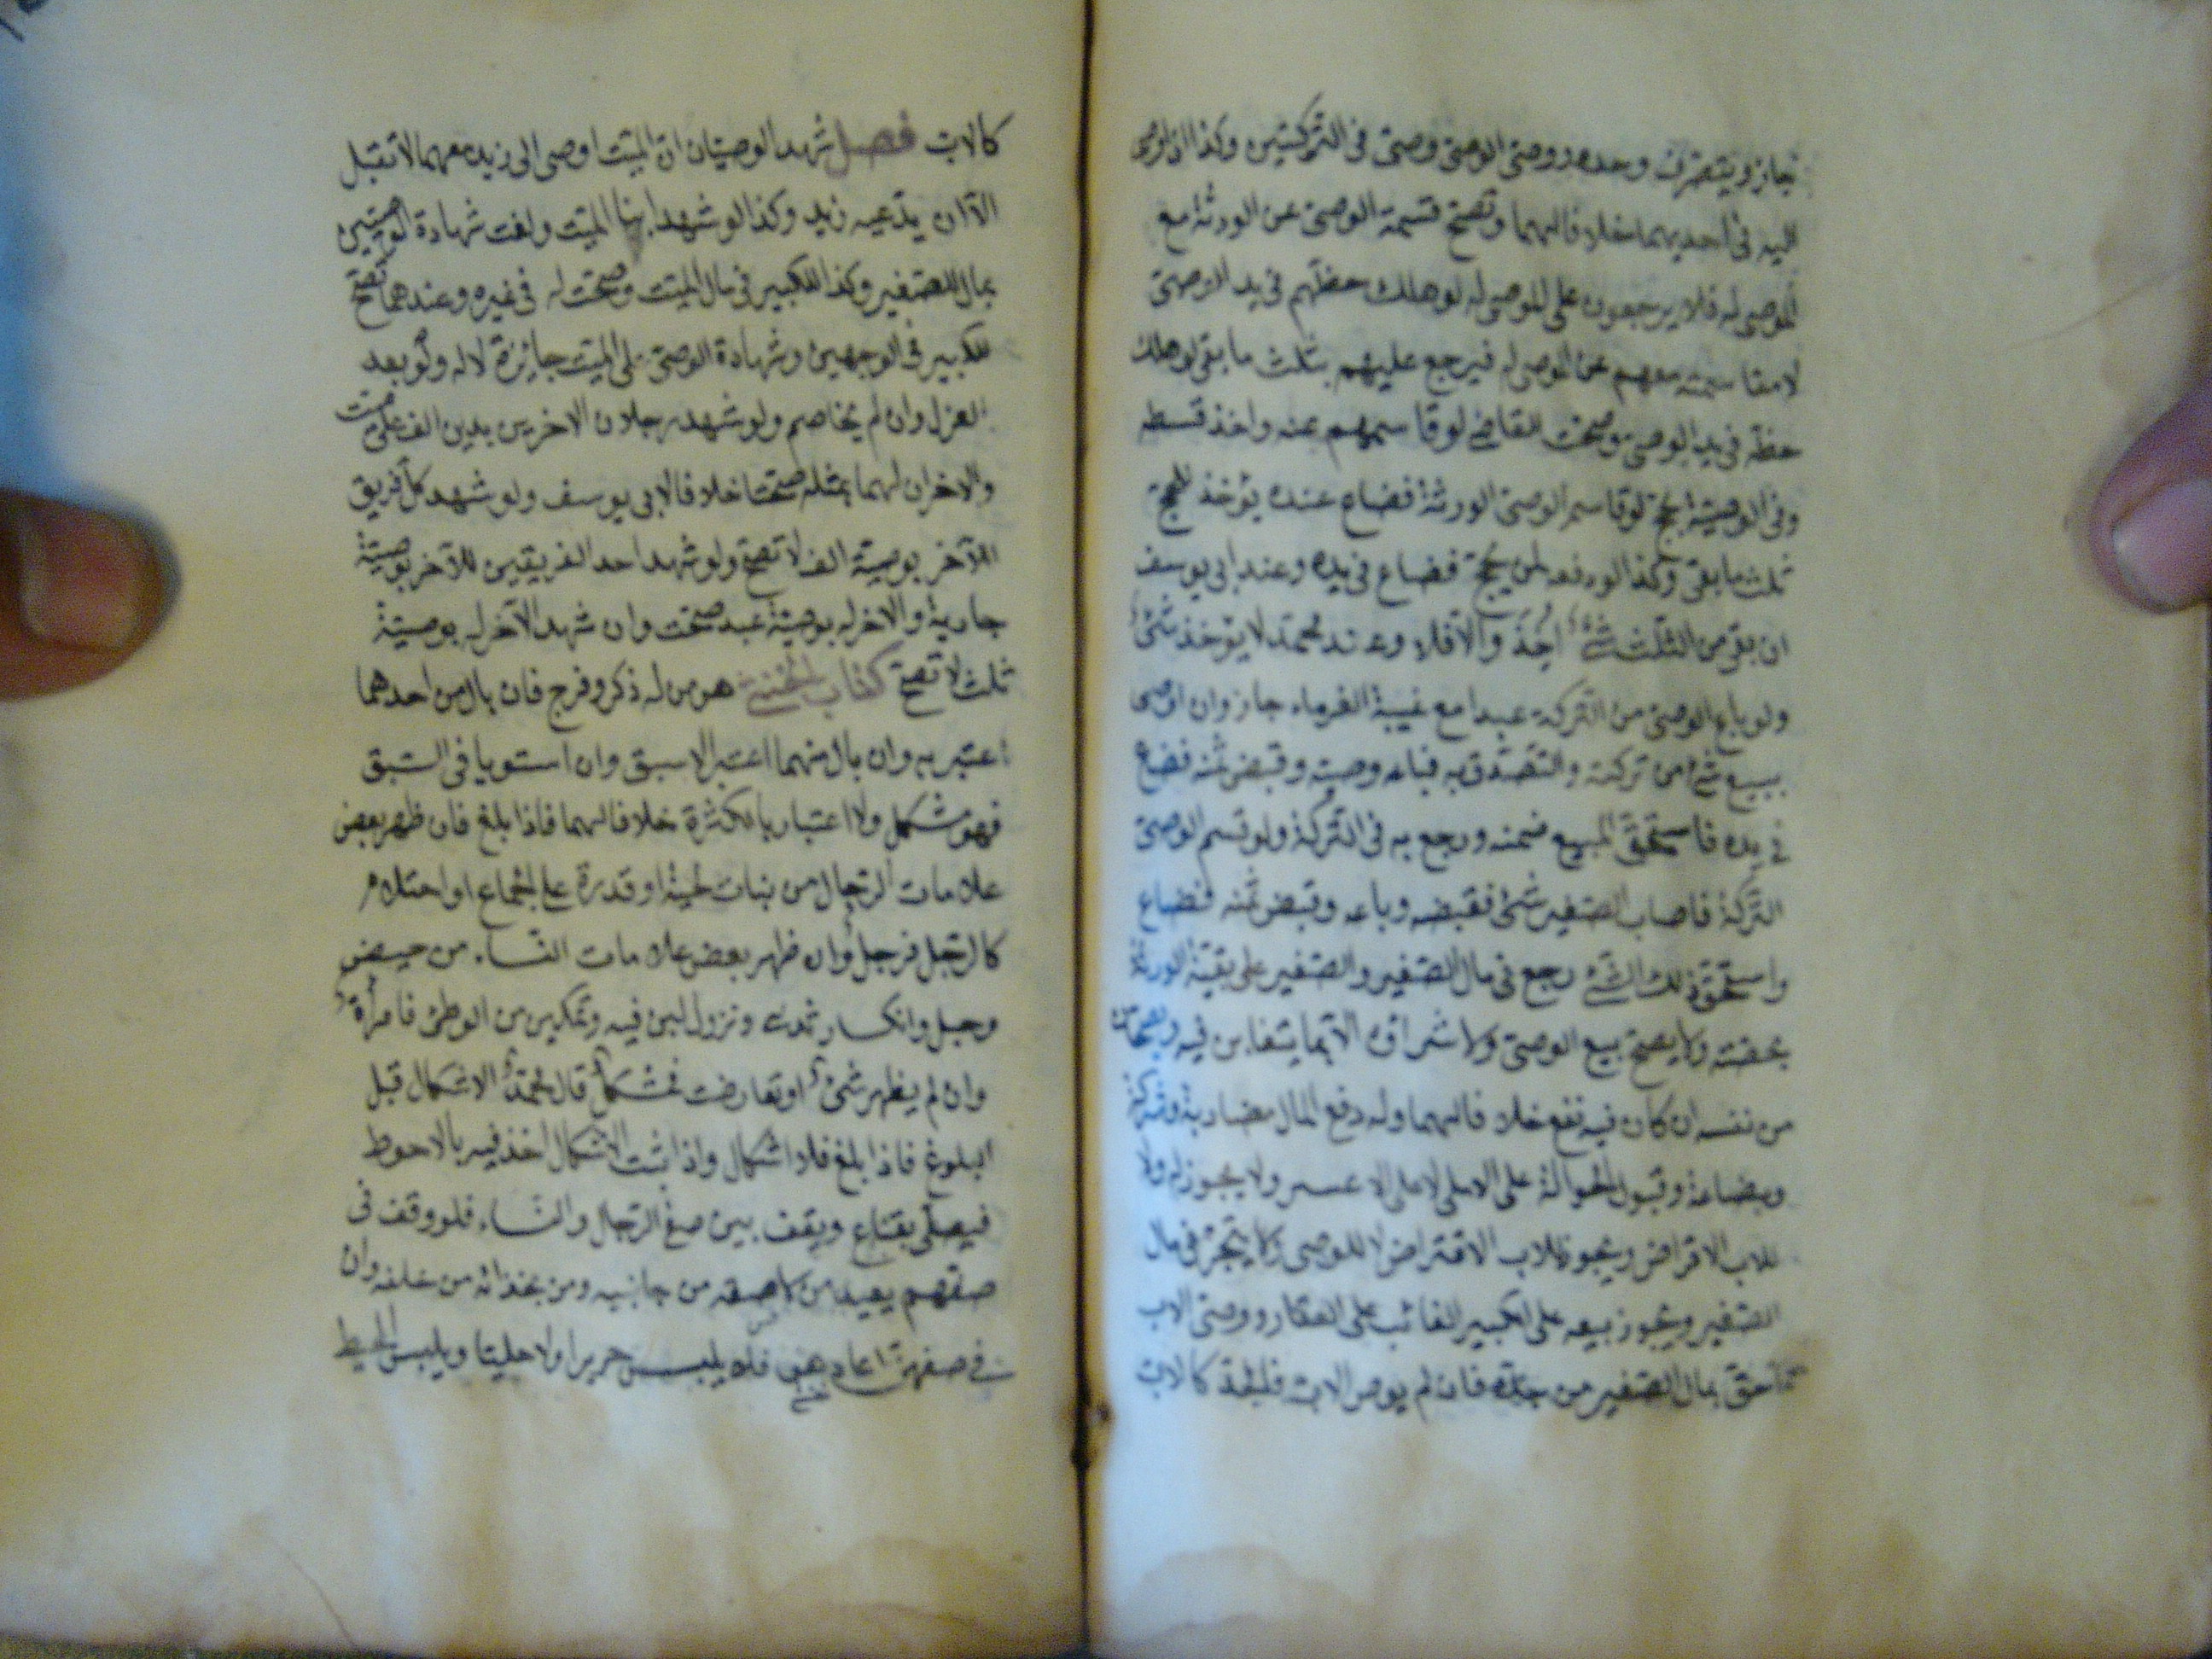 جاز ويتصرف وحده ووصى الوصى وصى فى التركتين وكذا ان اوصى
اليه فى احديهما خلافا لهما وتصح قسمة الوصى عن الورثة مع
الموصى له فلا يرجعون على الموصى له لو هلك حظهم فى يد الوصى
لا مقاسمته معهم عن الموصى له فيرجع عليهم بثلث ما بقى لو هلك
حظه فى يد الوصى وصحت للقاضى لو قاسمهم عنه واخذ قسطه
وفى الوصية بحج لو قاسم الوصى الورثة فضاع عنده يؤخذ للحج
ثلث ما بقى وكذا لو دفعه لمن يحج فضاع فى يده وعند ابى يوسف
ان بقى من الثلث شئ اخذ والا فلا وعند محمد لا يؤخذ شئ
ولو باع الوصى من التركة عبدا مع غيبة الغرماء جاز وان اوصى
ببيع شئ من تركته والتصدق به فباعه وصيه وقبض ثمنه فضاع
فى يده فاستحق المبيع ضمنه ورجع به فى التركة ولو قسم الوصى
التركة فاصاب الصغير شئ فقبضه وباعه وقبض ثمنه فضاع
واستحق ذلك الشئ رجع فى مال الصغير والصغير على بقية الورثة
بحصته ولا يصح بيع الوصى ولا شراؤه الا بما يتغابن فيه ويصحان
من نفسه ان كان فيه نفع خلافا لهما وله دفع المال مضاربة وشركة
وبضاعة وقبول الحوالة على الاملى لا على الاعسر ولا يجوز له ولا
للاب الاقراض ويجوز للاب الاقتراض لا للوصى ولا يتجر فى مال
الصغير ويجوز بيعه على الكبير الغائب على العقار ووصى الاب
احق بمال الصغير من جده فان لم يوص الاب فالجد كالاب
كالاب فصل شهد الوصيان ان الميت اوصى الى زيد معهما لا تقبل
الا ان يدعيه زيد وكذا لو شهد ابنا الميت ولغت شهادة الوصيين
بمال للصغير وكذا للكبير فى مال الميت وصحت له فى غيره وعندهما تصح
للكبير فى الوجهين وشهادة الوصى على الميت جايزة لا له ولو بعد
العزل وان لم يخاصم ولو شهد رجلان لاخرين بدين الف على ميت
والاخران لهما بمثله صحتا خلافا لابى يوسف ولو شهد كل فريق
للآخر بوصية الف لا تصح ولو شهد احد الفريقين للآخر بوصية
جارية والاخر له بوصية عبد صحت وان شهد الآخر له بوصية
ثلث لا تصح كتاب الخنثى هو من له ذكر وفرج فان بال من احدهما
اعتبر به وان بال منهما اعتبر الاسبق وان استويا فى السبق
فهو مشكل ولا اعتبار بالكثرة خلافا لهما فاذا بلغ فان ظهر بعض
علامات الرجال من نبات لحية او قدرة على الجماع او احتلام
كالرجل فرجل وان ظهر بعض علامات النساء من حيض
وحبل وانكسار ثدى ونزول لبن فيه وتمكين من الوطئ فامرأة
وان لم يظهر شئ او تعارضت فمشكل قال محمد الاشكال قبل
البلوغ فاذا بلغ فلا اشكال واذا ثبت الاشكال اخذ فيه بالاحوط
فيصلى بقناع ويقف بين صف الرجال والنساء فلو وقف فى
صفهم يعيد من لاصقه من جانبيه ومن بحذائه من خلفه وان
فى صفهن اعاد هو فلا يلبس حريرا ولا حليا ويلبس المخيط